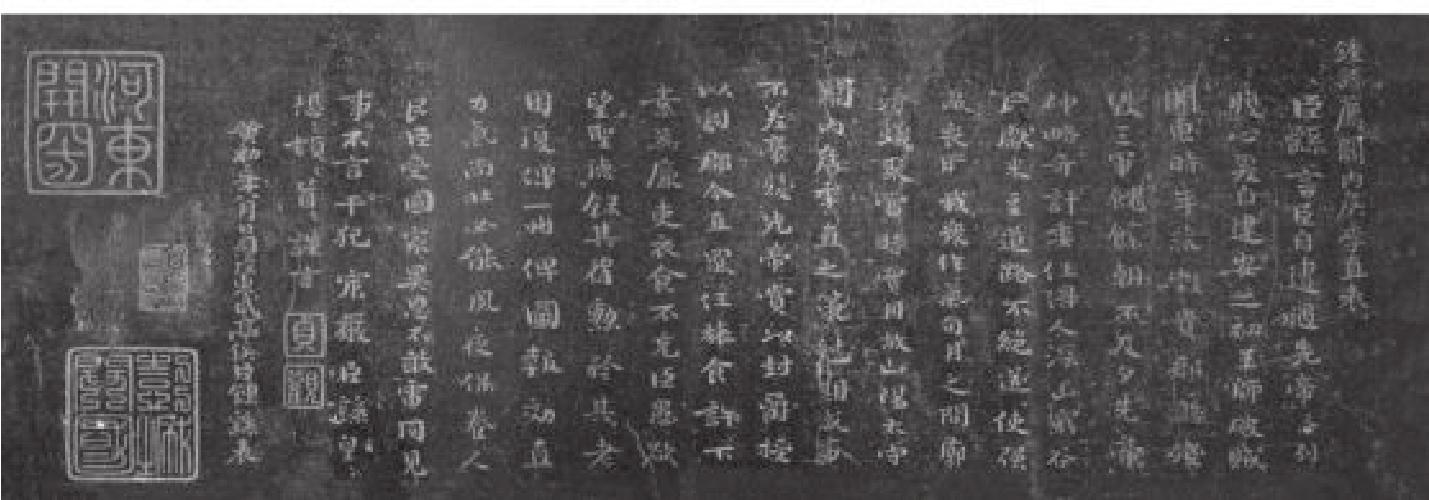 薦關內侯季直表
臣繇言臣自遭遇先帝忝列
腹心爰自建安之初王師破賊
關東時年荒穀貴郡縣殘
毀三軍餽饟朝不及夕先帝
神略奇計委任得人深山窮谷
民獻米豆道路不絕遂使強
敵喪膽我衆作氣旬月之間廓
清蟻聚當時實用故山陽太守
關內侯季直之策剋期成事
不差豪髮先帝賞以封爵授
以劇郡今直罷任旅食許下
素為廉吏衣食不充臣愚欲
望聖德錄其舊勳矜其老
困復俾一州俾圖報效直
力氣尚壯必能夙夜保養人
民臣受國家異恩不敢雷同見
事不言干犯宸嚴臣繇皇〻
恐〻頓〻首〻謹言
貞觀
黃初二年八月日司徒東武亭侯臣鍾繇表
河東